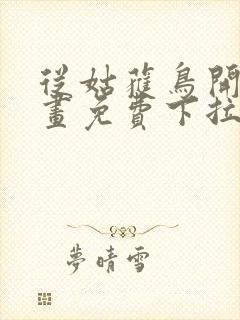 從姑蓷鳥開
畫免費下拉
夢晴雪